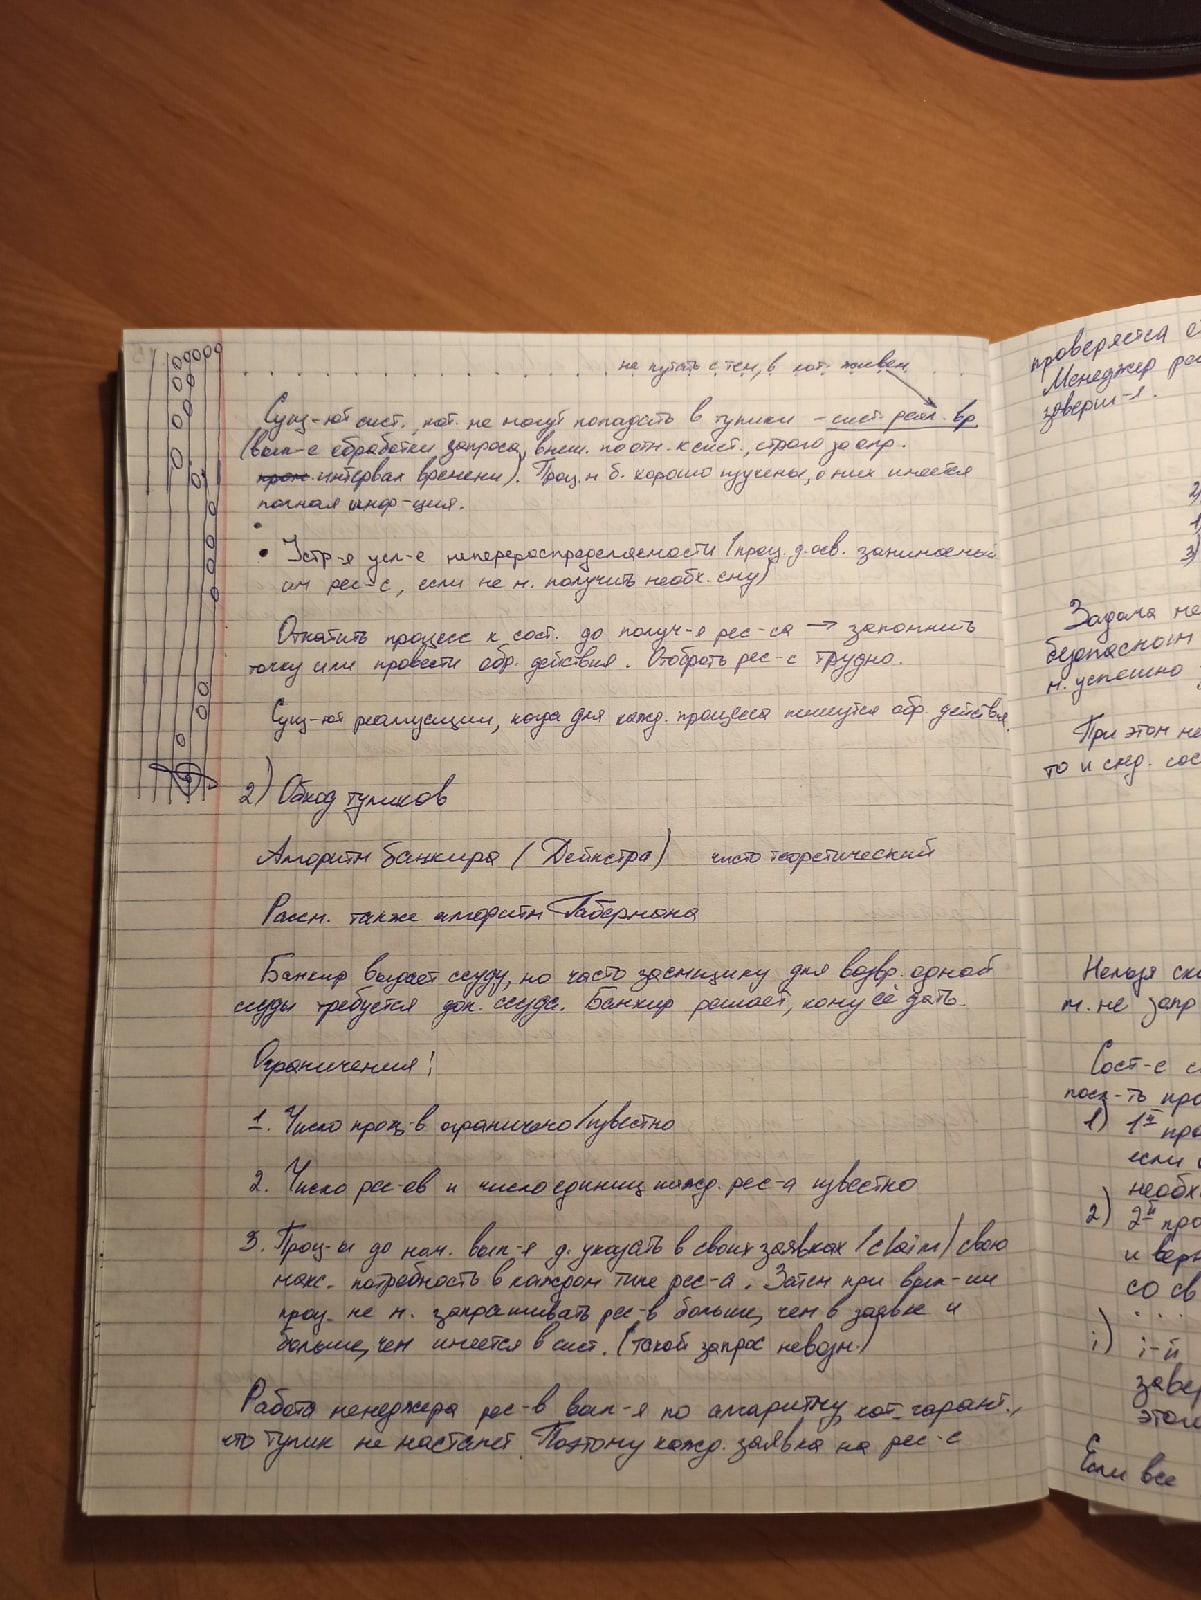 не путать с тем, в кот. живем
Сущ-ют сист., кот. не могут попадать в тупики – сист. реал. вр.
(вып-е обработки запроса, внеш. по отн. к сист., строго за опр.
интервал времени). Проц. м б. хорошо изучены, о них имеется
полная инф-ция.
• Устр-я усл-е неперераспределяемости (проц. д. осв. занимаемый
им рес-с, если не м. получить необх. ему)
Откатить процесс к сост. до получ-я рес-са → запомнить
точку или провести обр. действия. Отобрать рес-с трудно.
Сущ-ют реализации, когда для кажд. процесса пишутся обр. действия.
2) Обход тупиков
Алгоритм банкира (Дейкстра) чисто теоретический
Рассм. также алгоритм Габермана
Банкир выдает ссуду, но часто заемщику для возвр. одной
ссуды требуется доп. ссуда. Банкир решает, кому её дать.
Ограничения:
1. Число проц-в ограничено/известно
2. Число рес-ов и число единиц кажд. рес-а известно
3. Проц-ы до нач. вып-я д. указать в своих заявках (claim) свою
макс. потребность в каждом типе рес-а. Затем при вып-ии
проц. не м. запрашивать рес-в больше, чем в заявке и
больше, чем имеется в сист. (такой запрос невозм.)
Работа менеджера рес-в вып-я по алгоритму, кот. гарант.,
что тупик не настанет. Поэтому кажд. заявка на рес-с
проверяется
Менеджер
заверш-я.
2)
1)
3)
Задача
м. успешно
При этом
то и след.
Нельзя
м. не запр
Сост-е
1) 1й
если
необх
2) 2й
и верн
со св
...
i) i-й
завер
этом
Если все